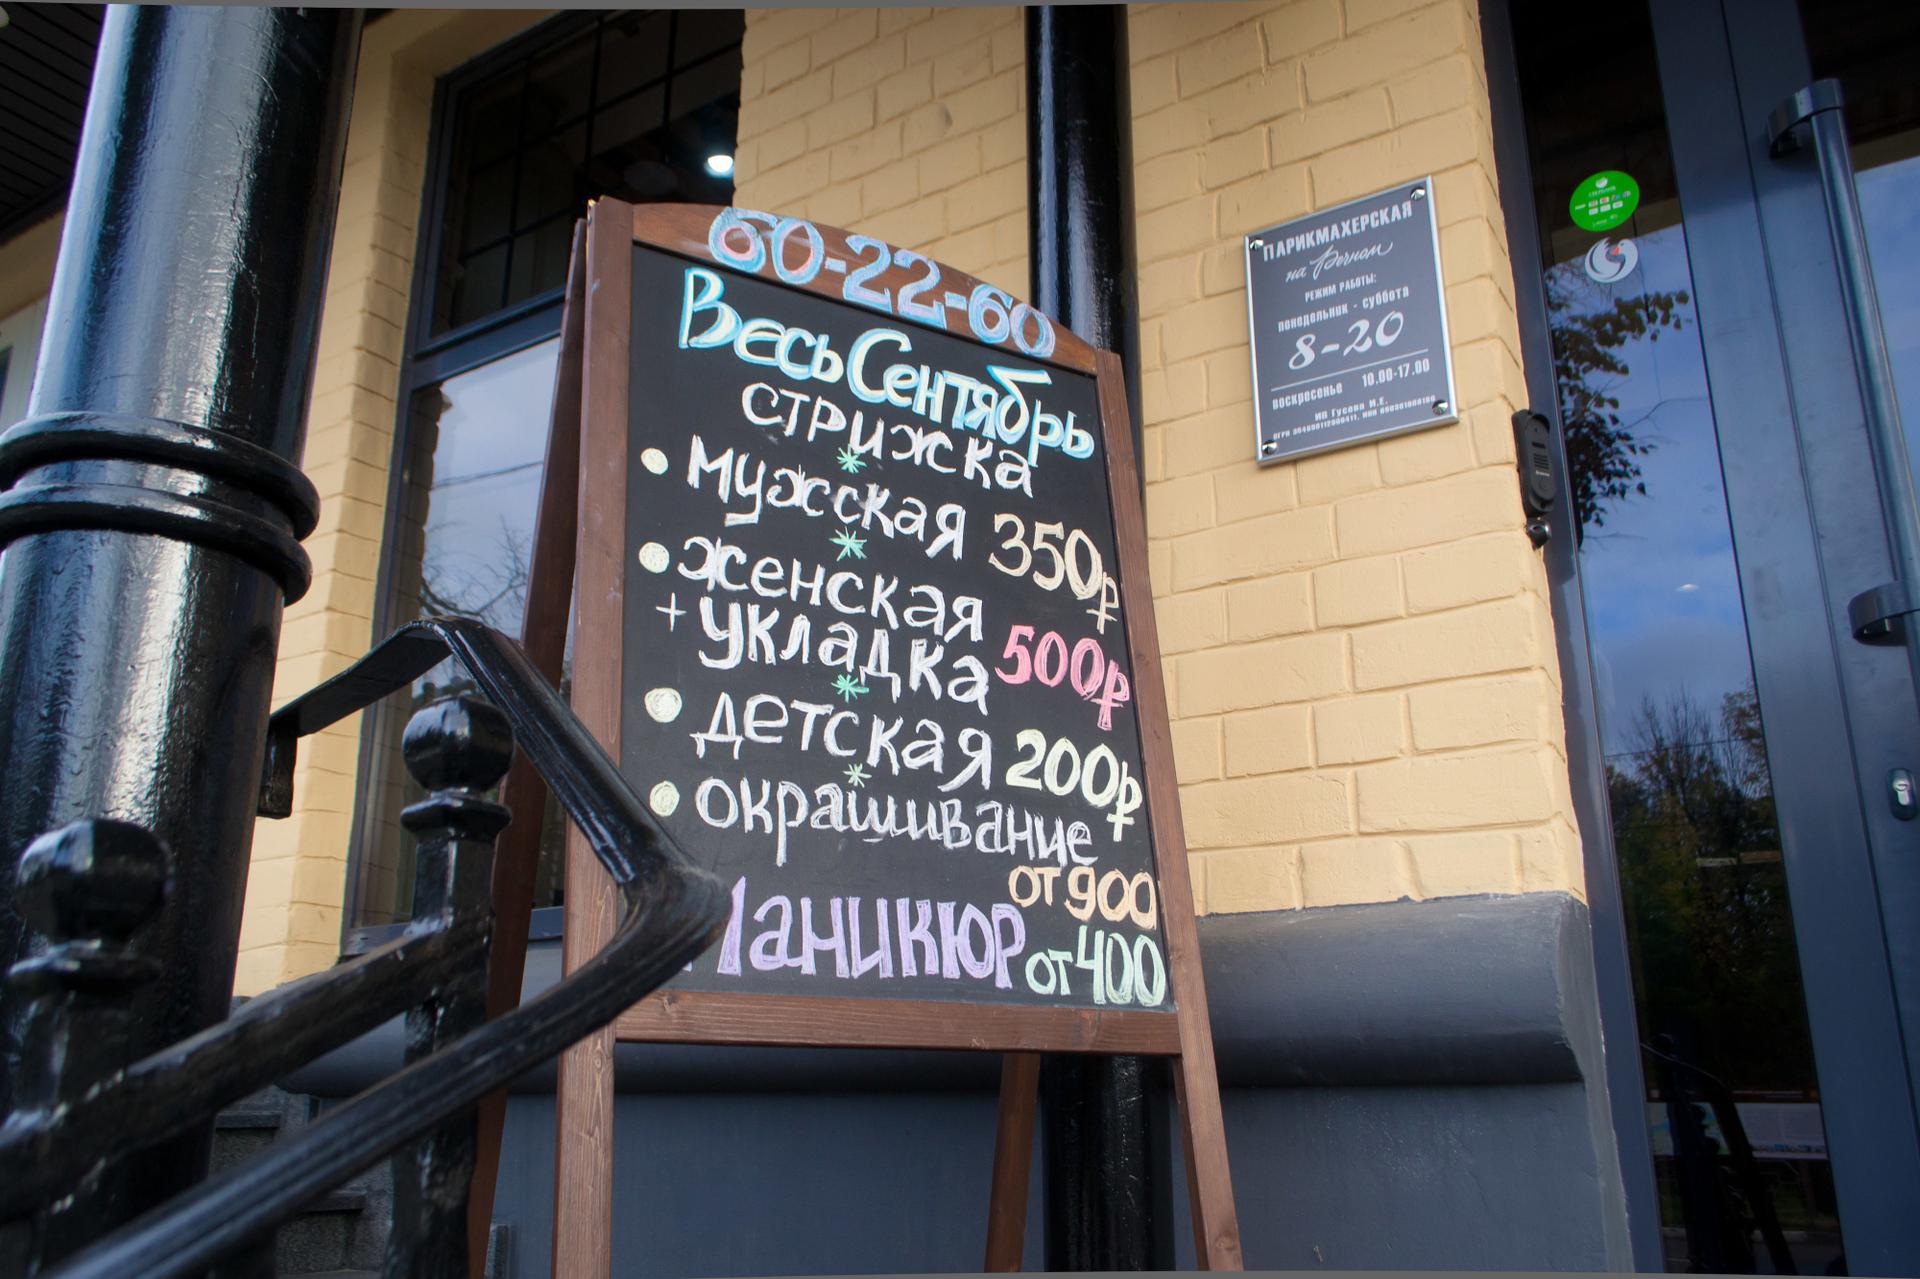 60-22-60
Весь Сентябрь
стрижка
мужская 350₽
женская
+ укладка 500₽
детская 200₽
окрашивание
от 900
Маникюр от 400
ПАРИКМАХЕРСКАЯ
на Речном
РЕЖИМ РАБОТЫ:
понедельник - суббота
8-20
воскресенье 10.00-17.00
ИП Гусева И.Е.